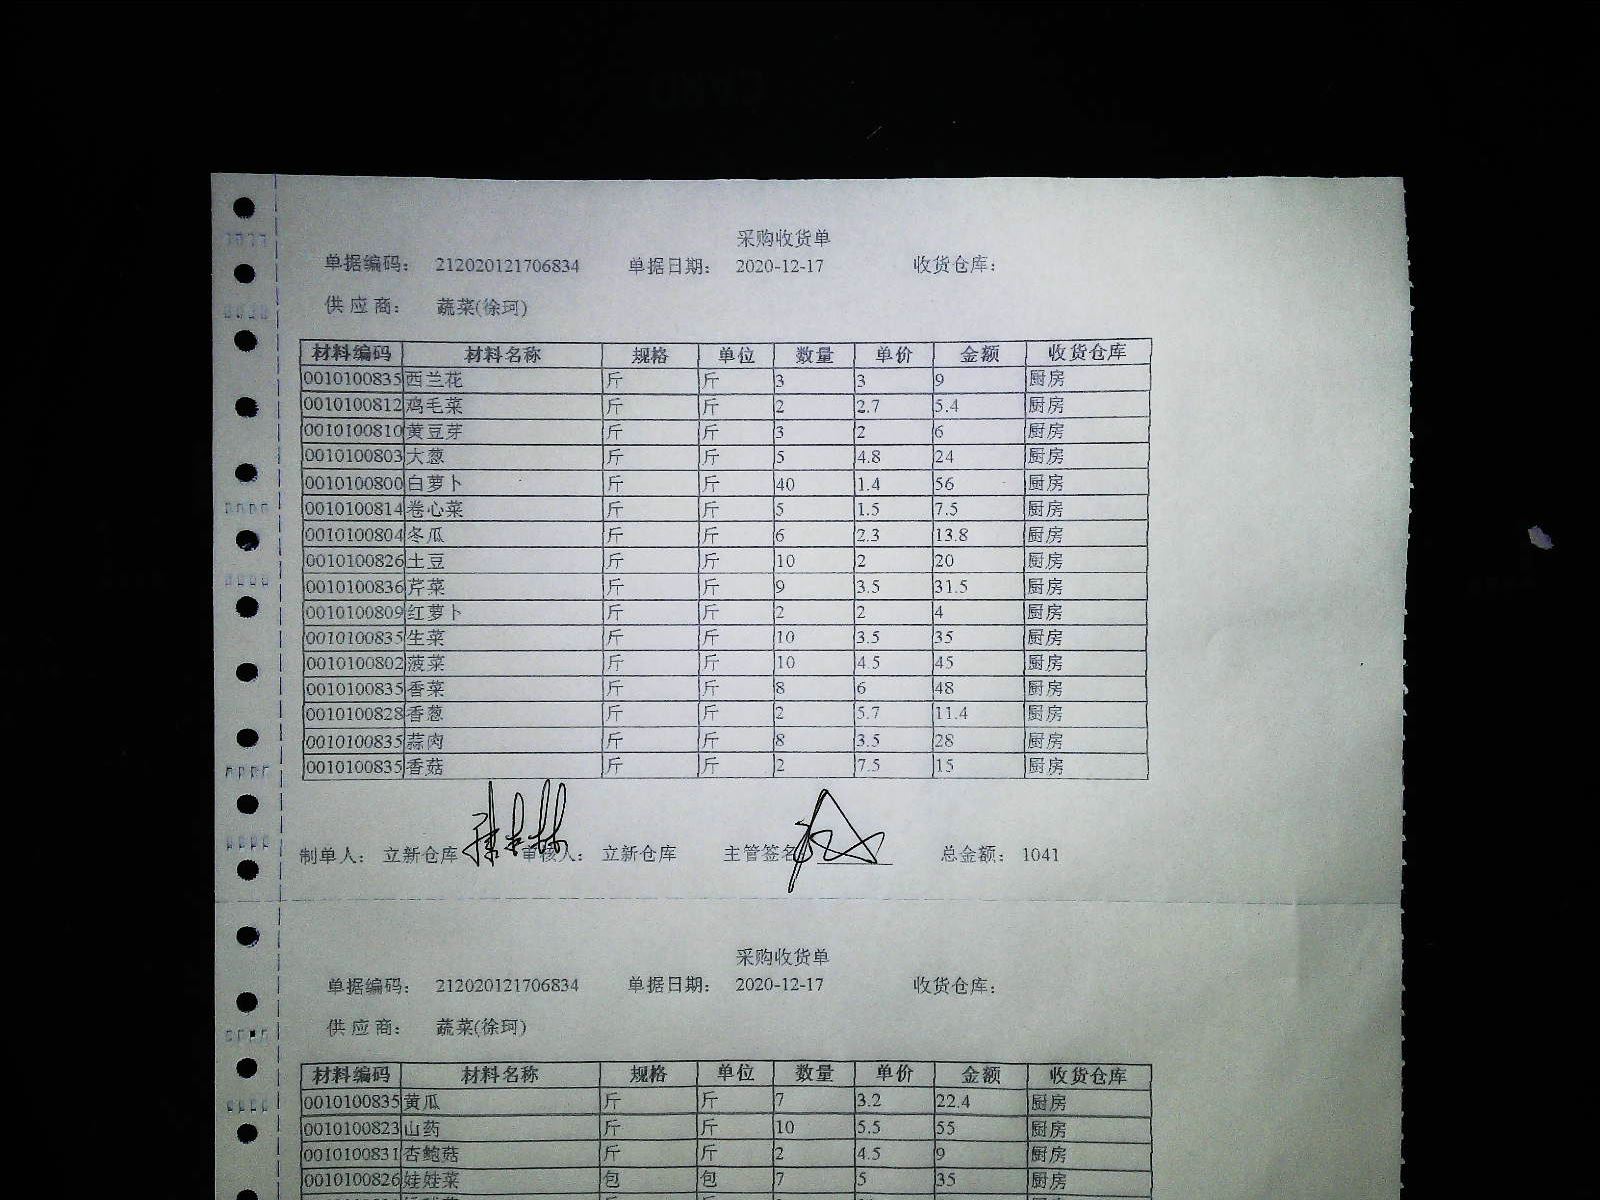 采购收货单
单据编码： 212020121706834 单据日期： 2020-12-17 收货仓库：
供 应 商： 蔬菜(徐珂)
材料编码 材料名称 规格 单位 数量 单价 金额 收货仓库
0010100835 西兰花 斤 斤 3 3 9 厨房
0010100812 鸡毛菜 斤 斤 2 2.7 5.4 厨房
0010100810 黄豆芽 斤 斤 3 2 6 厨房
0010100803 大葱 斤 斤 5 4.8 24 厨房
0010100800 白萝卜 斤 斤 40 1.4 56 厨房
0010100814 卷心菜 斤 斤 5 1.5 7.5 厨房
0010100804 冬瓜 斤 斤 6 2.3 13.8 厨房
0010100826 土豆 斤 斤 10 2 20 厨房
0010100836 芹菜 斤 斤 9 3.5 31.5 厨房
0010100809 红萝卜 斤 斤 2 2 4 厨房
0010100835 生菜 斤 斤 10 3.5 35 厨房
0010100802 菠菜 斤 斤 10 4.5 45 厨房
0010100835 香菜 斤 斤 8 6 48 厨房
0010100828 香葱 斤 斤 2 5.7 11.4 厨房
0010100835 蒜肉 斤 斤 8 3.5 28 厨房
0010100835 香菇 斤 斤 2 7.5 15 厨房
制单人： 立新仓库 审核人： 立新仓库 主管签名 总金额： 1041
采购收货单
单据编码： 212020121706834 单据日期： 2020-12-17 收货仓库：
供 应 商： 蔬菜(徐珂)
材料编码 材料名称 规格 单位 数量 单价 金额 收货仓库
0010100835 黄瓜 斤 斤 7 3.2 22.4 厨房
0010100823 山药 斤 斤 10 5.5 55 厨房
0010100831 杏鲍菇 斤 斤 2 4.5 9 厨房
0010100826 娃娃菜 包 包 7 5 35 厨房